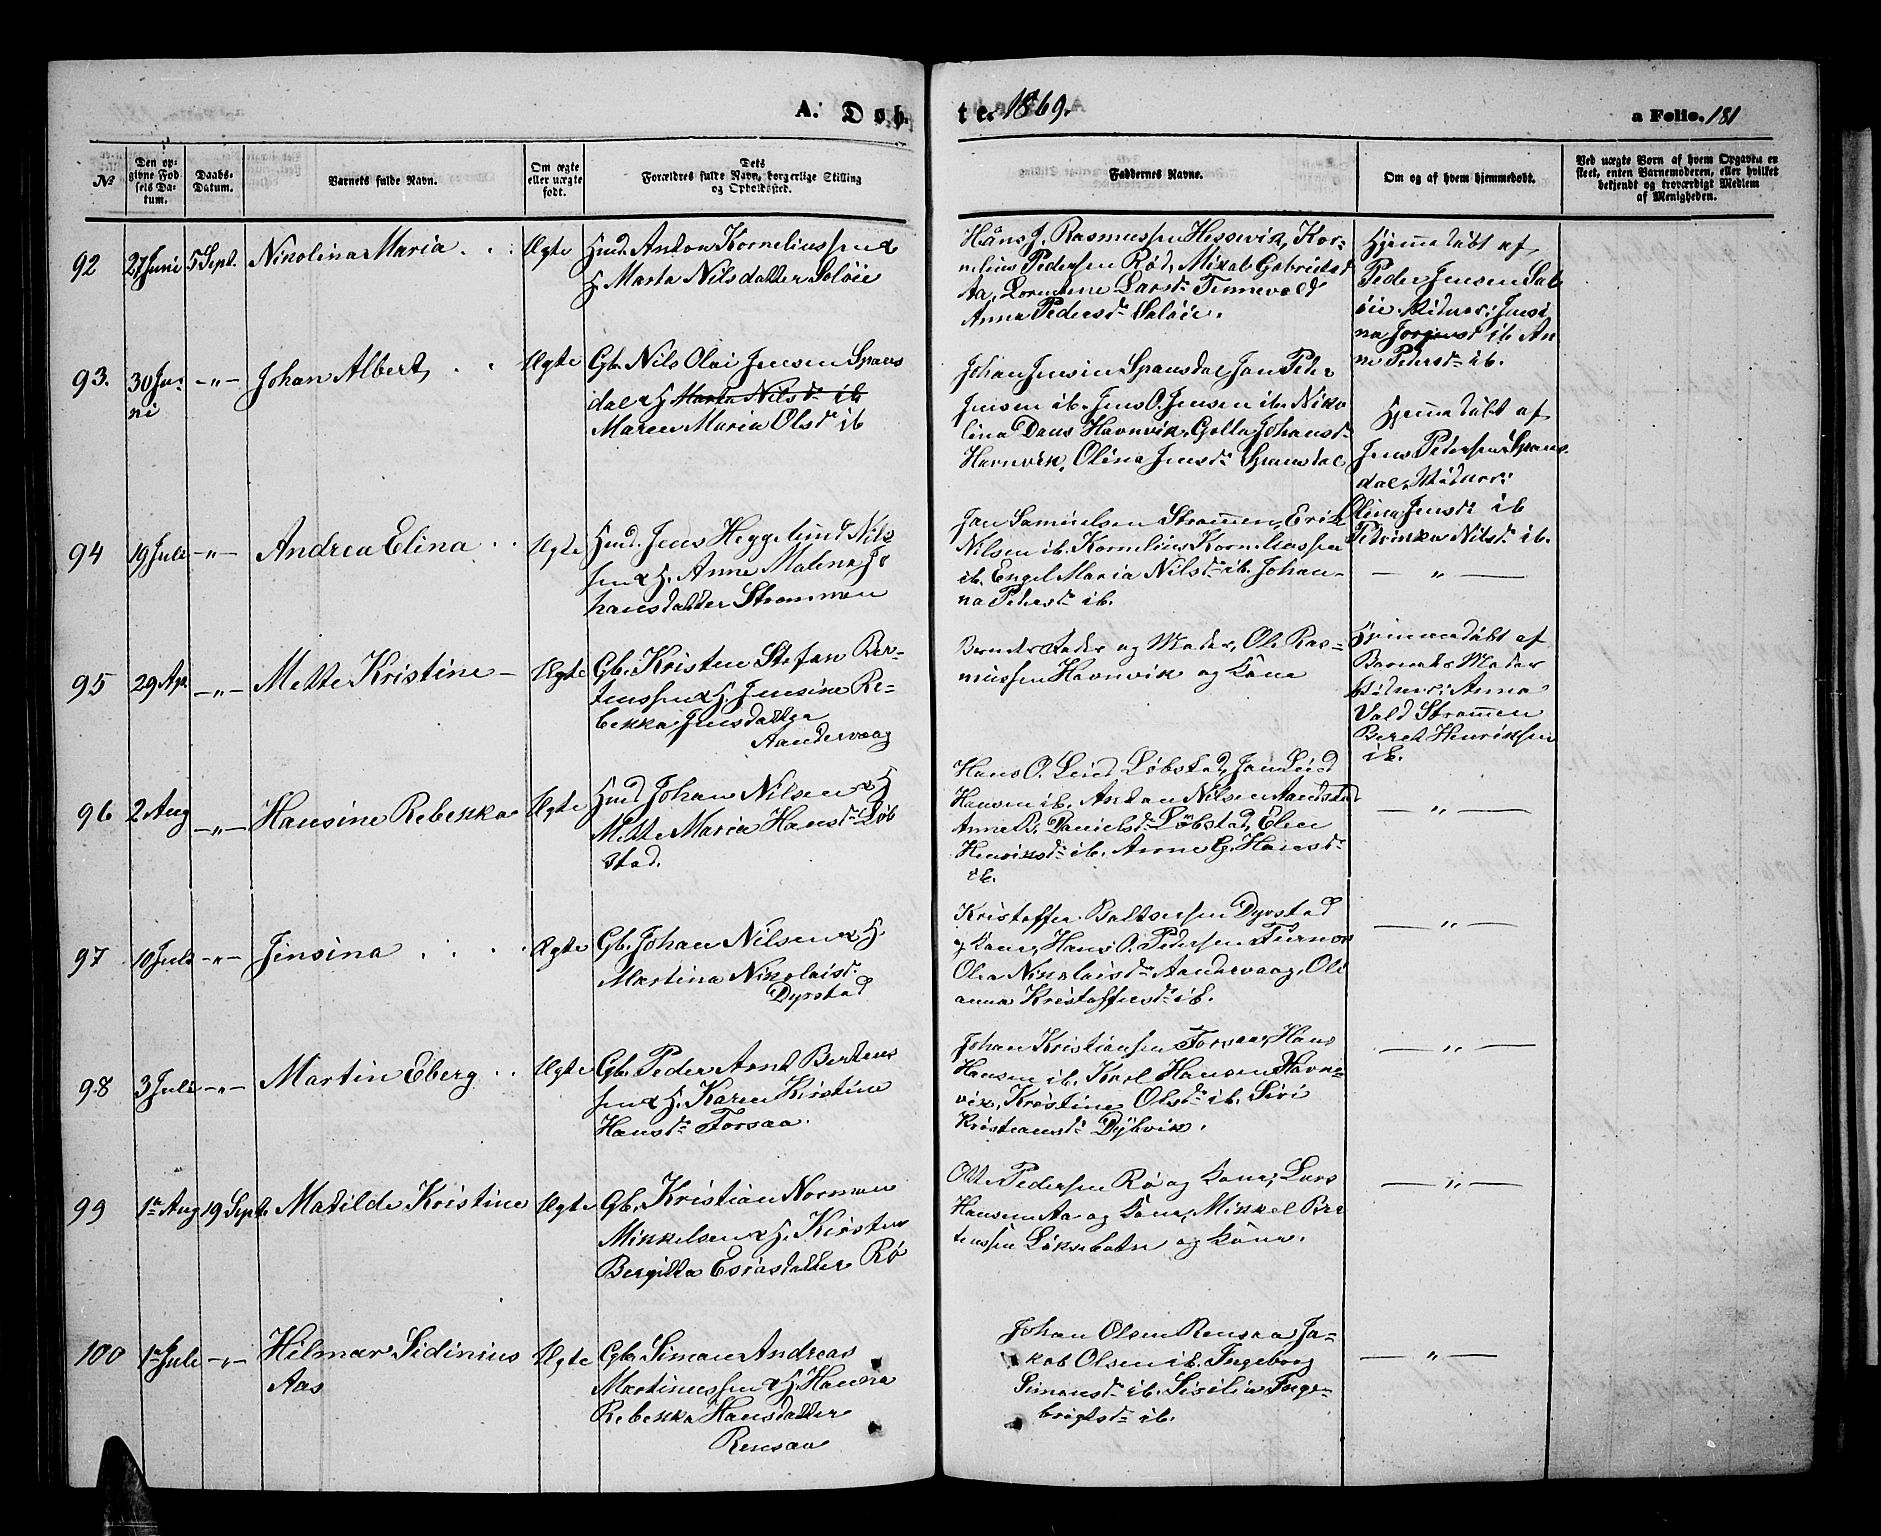 A. Døb-
te. 1869.
a Folio. 181
№
Den op-
givne Fød-
sels Da-
tum.
Daabs-
Datum.
Barnets fulde Navn.
Om ægte
eller uægte
født.
Dets
Forældres fulde Navn, borgerlige Stilling
og Opholdssted.
Faddernes Navne.
Om og af hvem hjemmedøbt.
Ved uægte Børn af hvem Opgaven er
skeet, enten Barnemoderen, eller hvilket
bekjendt og troværdigt Medlem
af Menigheden.
92 27 Juni 5 Sept. Nikolina Maria Ægte
Hmd. Anton Korneliussen &
H. Marta Nilsdatter Saløie
Hans J. Rasmussen Hessevik, Kor-
nelius Pedersen Rød, Mikal Gabrielsd
Aa, Lorntine Larsd. Tennevold
Anna Pedersd. Saløie.
Hjemmedøbt af
Peder Jensen Sal
øie. Vidner: Jensi
na Jørgensd ib. An
ne Pedersd. ib.
93. 30 Ju-
ni -"- Johan Albert Ægte
Gb. Nils Olai Jensen Spans
dal & H. Marta Nilsd. ib
Maren Maria Olsd ib
Johan Jensen Spansdal Jan Peder
Jensen ib. Jens O. Jensen ib. Niko
lina Dans Havnvik, Golla Johansd.
Havnvik, Olina Jensd. Spansdal
Hjemmedøbt af
Jens Pedersen Spans
dal, Vidner:
Olina Jensd. ib
Petrika Nilsd. ib.
94 19 Juli -"- Andrea Elina Ægte
Hmd. Jens Heggelund Nils
sen & H. Anne Malena Jo
hansdatter Strømmen
Jan Samuelsen Strømmen, Erik
Nilsen ib. Kornelius Korneliussen
ib. Engel Maria Nilsd. ib. Johan-
na Pedersd. ib.
— " —
95 29 Ap. -"- Mette Kristine Ægte
Gb. Kristen Stefan Ber-
tenssen & H. Jensine Re-
bekka Jensdatter
Aandervaag
Barnets Fader og Moder, Ole Ras-
mussen Havnvik og Kone
Hjemmedøbt af
Barnets Moder
Vidner: Anna
Vold Strømmen
Beret Henriksen
ib.
96 2 Aug -"- Hansine Rebekka Ægte
Hmd. Johan Nilsen & H
Mette Maria Hansd. Løb
stad.
Hans O. Lind Løbstad, Jan Lind
Hansen ib. Anton Nilsen Aandstad
Anne B. Danielsd. Løbstad, Elen
Henriksd. ib. Anne G. Hansd.
ib.
— " —
97 10 Juli -"- Jensina Ægte
Gb. Johan Nilsen & H.
Martina Nikolaisd.
Dyrstad
Kristoffer Baltsersen Dyrstad
& Kone, Hans O. Pedersen
Olea Nikolaisd. Aandervaag, Oli
anna Kristoffersd. ib.
— " —
98 3 Juli -"- Martin Eberg Ægte
Gb. Peder Arnt Bertens
sen & H. Karen Kirstine
Hansd. Forsaa.
Johan Kristiansen Forsaa, Hans
Hansen ib. Karl Hansen Havn-
vik, Kristine Olsd. ib. Siri
Kristiansd. Dybvik.
— " —
99 1ste Aug 19 Sept. Matilde Kristine Ægte
Gb. Kristian Norman
Mikkelsen & H. Kirsten
Bergitta Esiasdatter Rø
Otte Pedersen Rø og Kone, Lars
Hansen Aa og Kone, Mikkel Ber
tenssen Løksebotn og Kone.
— " —
100 1ste Juli -"- Hilmar Sidinius
Aas Ægte
Gb. Simon Andreas
Martinussen & H. Hanna
Rebekka Hansdatter
Rensaa
Johan Olsen Rensaa Ja-
kob Olsen ib. Ingeborg
Simonsd. ib. Sisilia Inge-
brigtsd. ib.
— " —